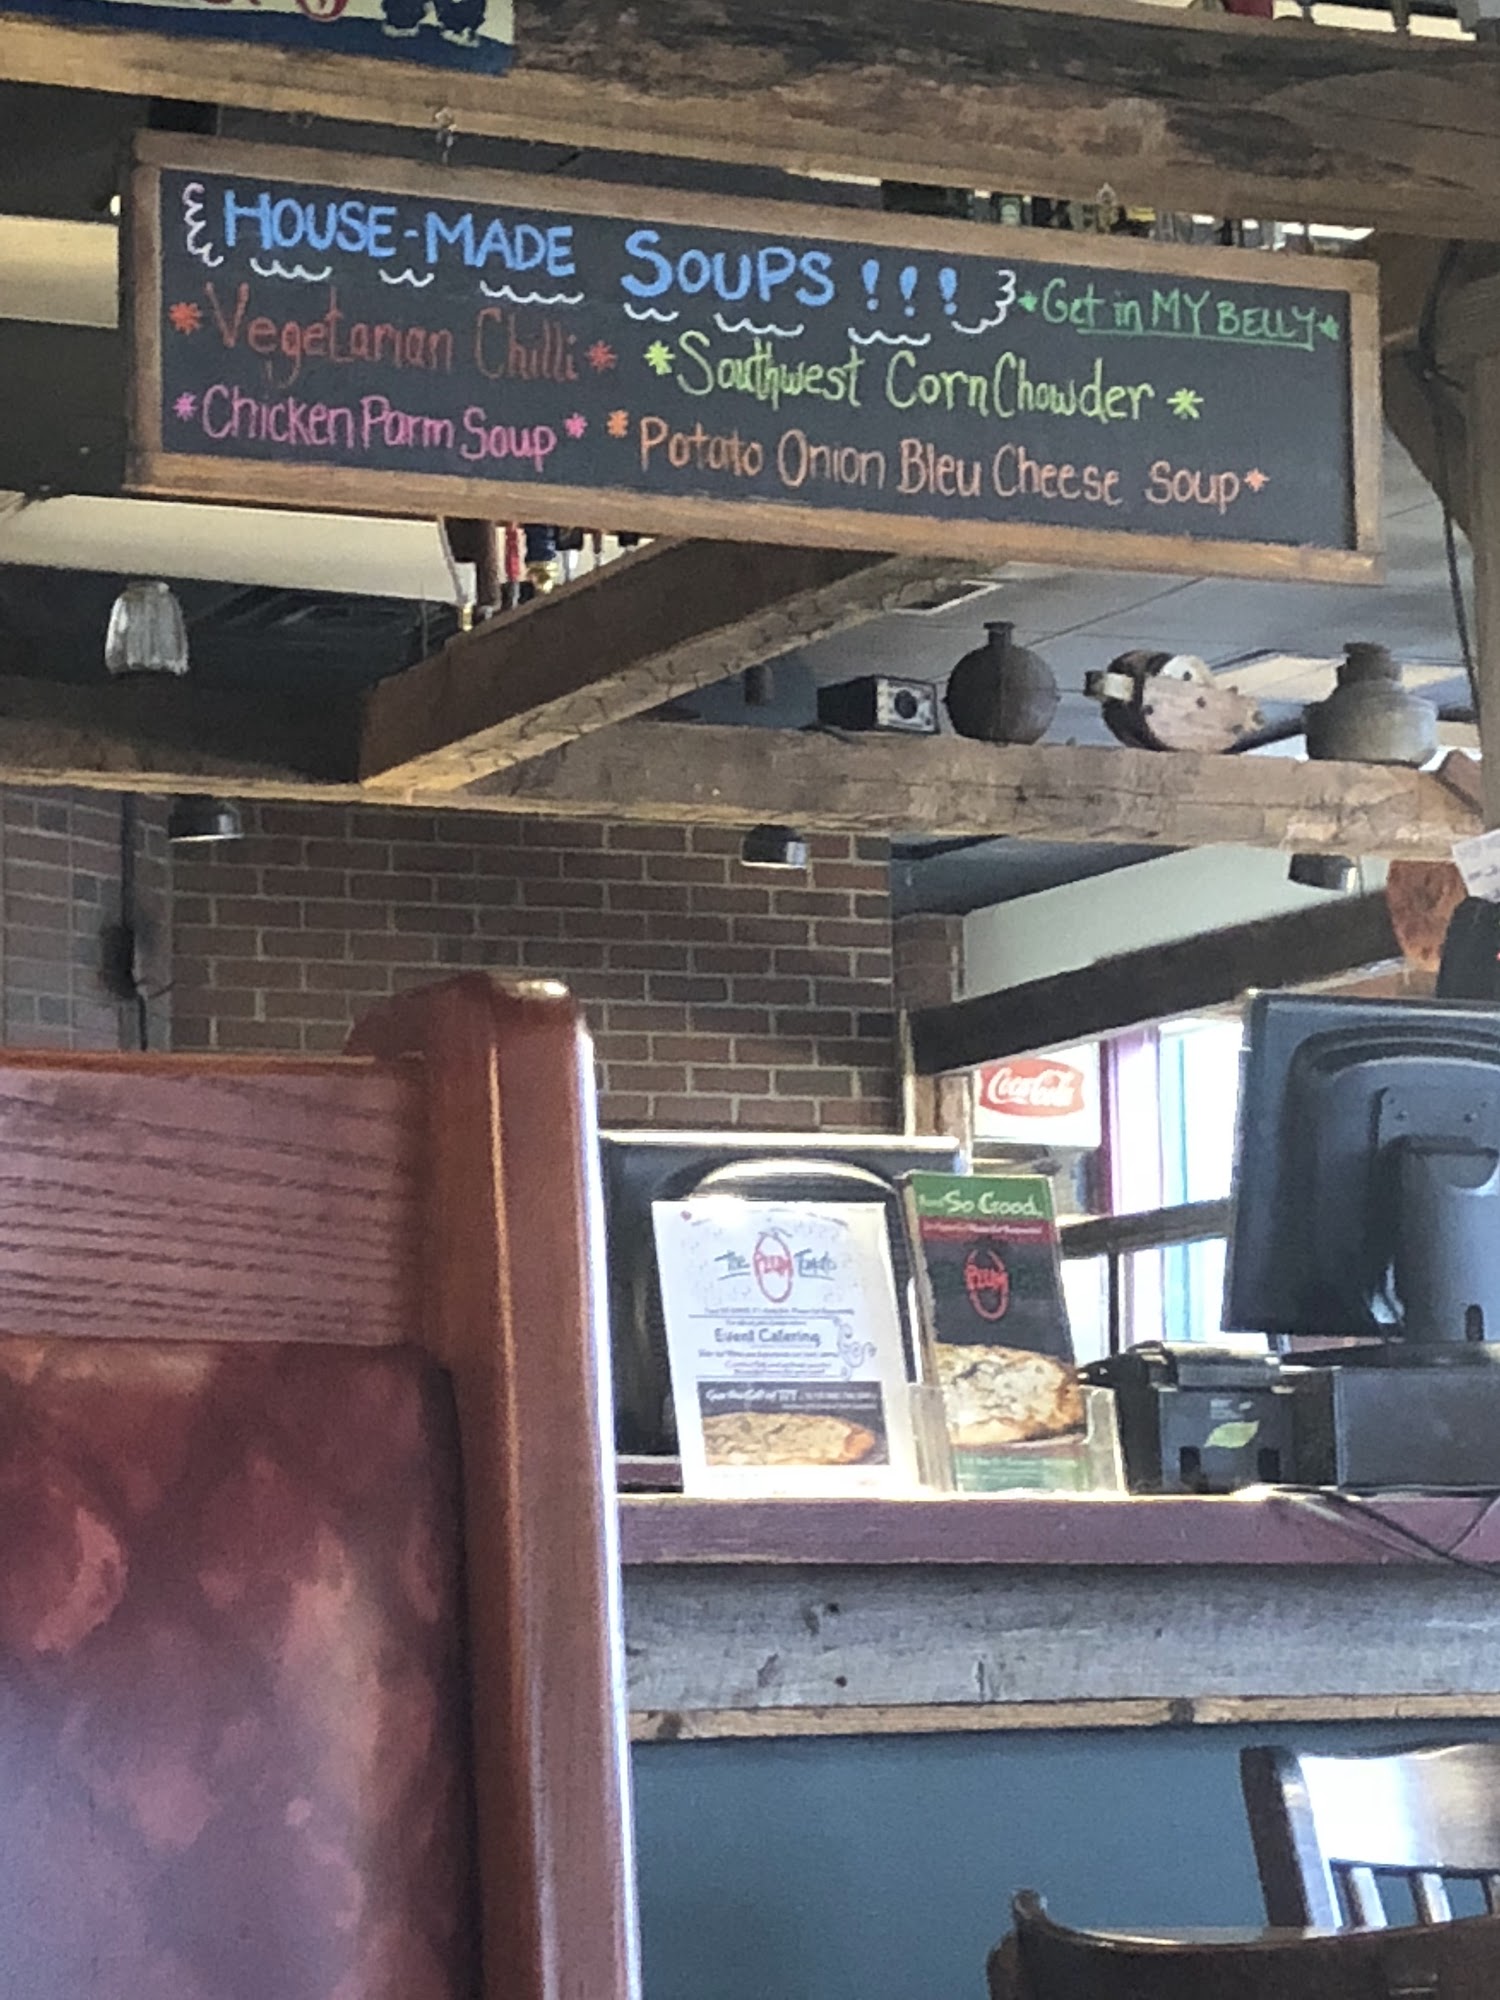 HOUSE-MADE SOUPS !!!
*Get in MY BELLY*
*Vegetarian Chilli*
*Southwest Corn Chowder*
*Chicken Parm Soup*
*Potato Onion Bleu Cheese Soup*
Coca-Cola
The PLUM Tomato
Event Catering
So Good...
PLUM